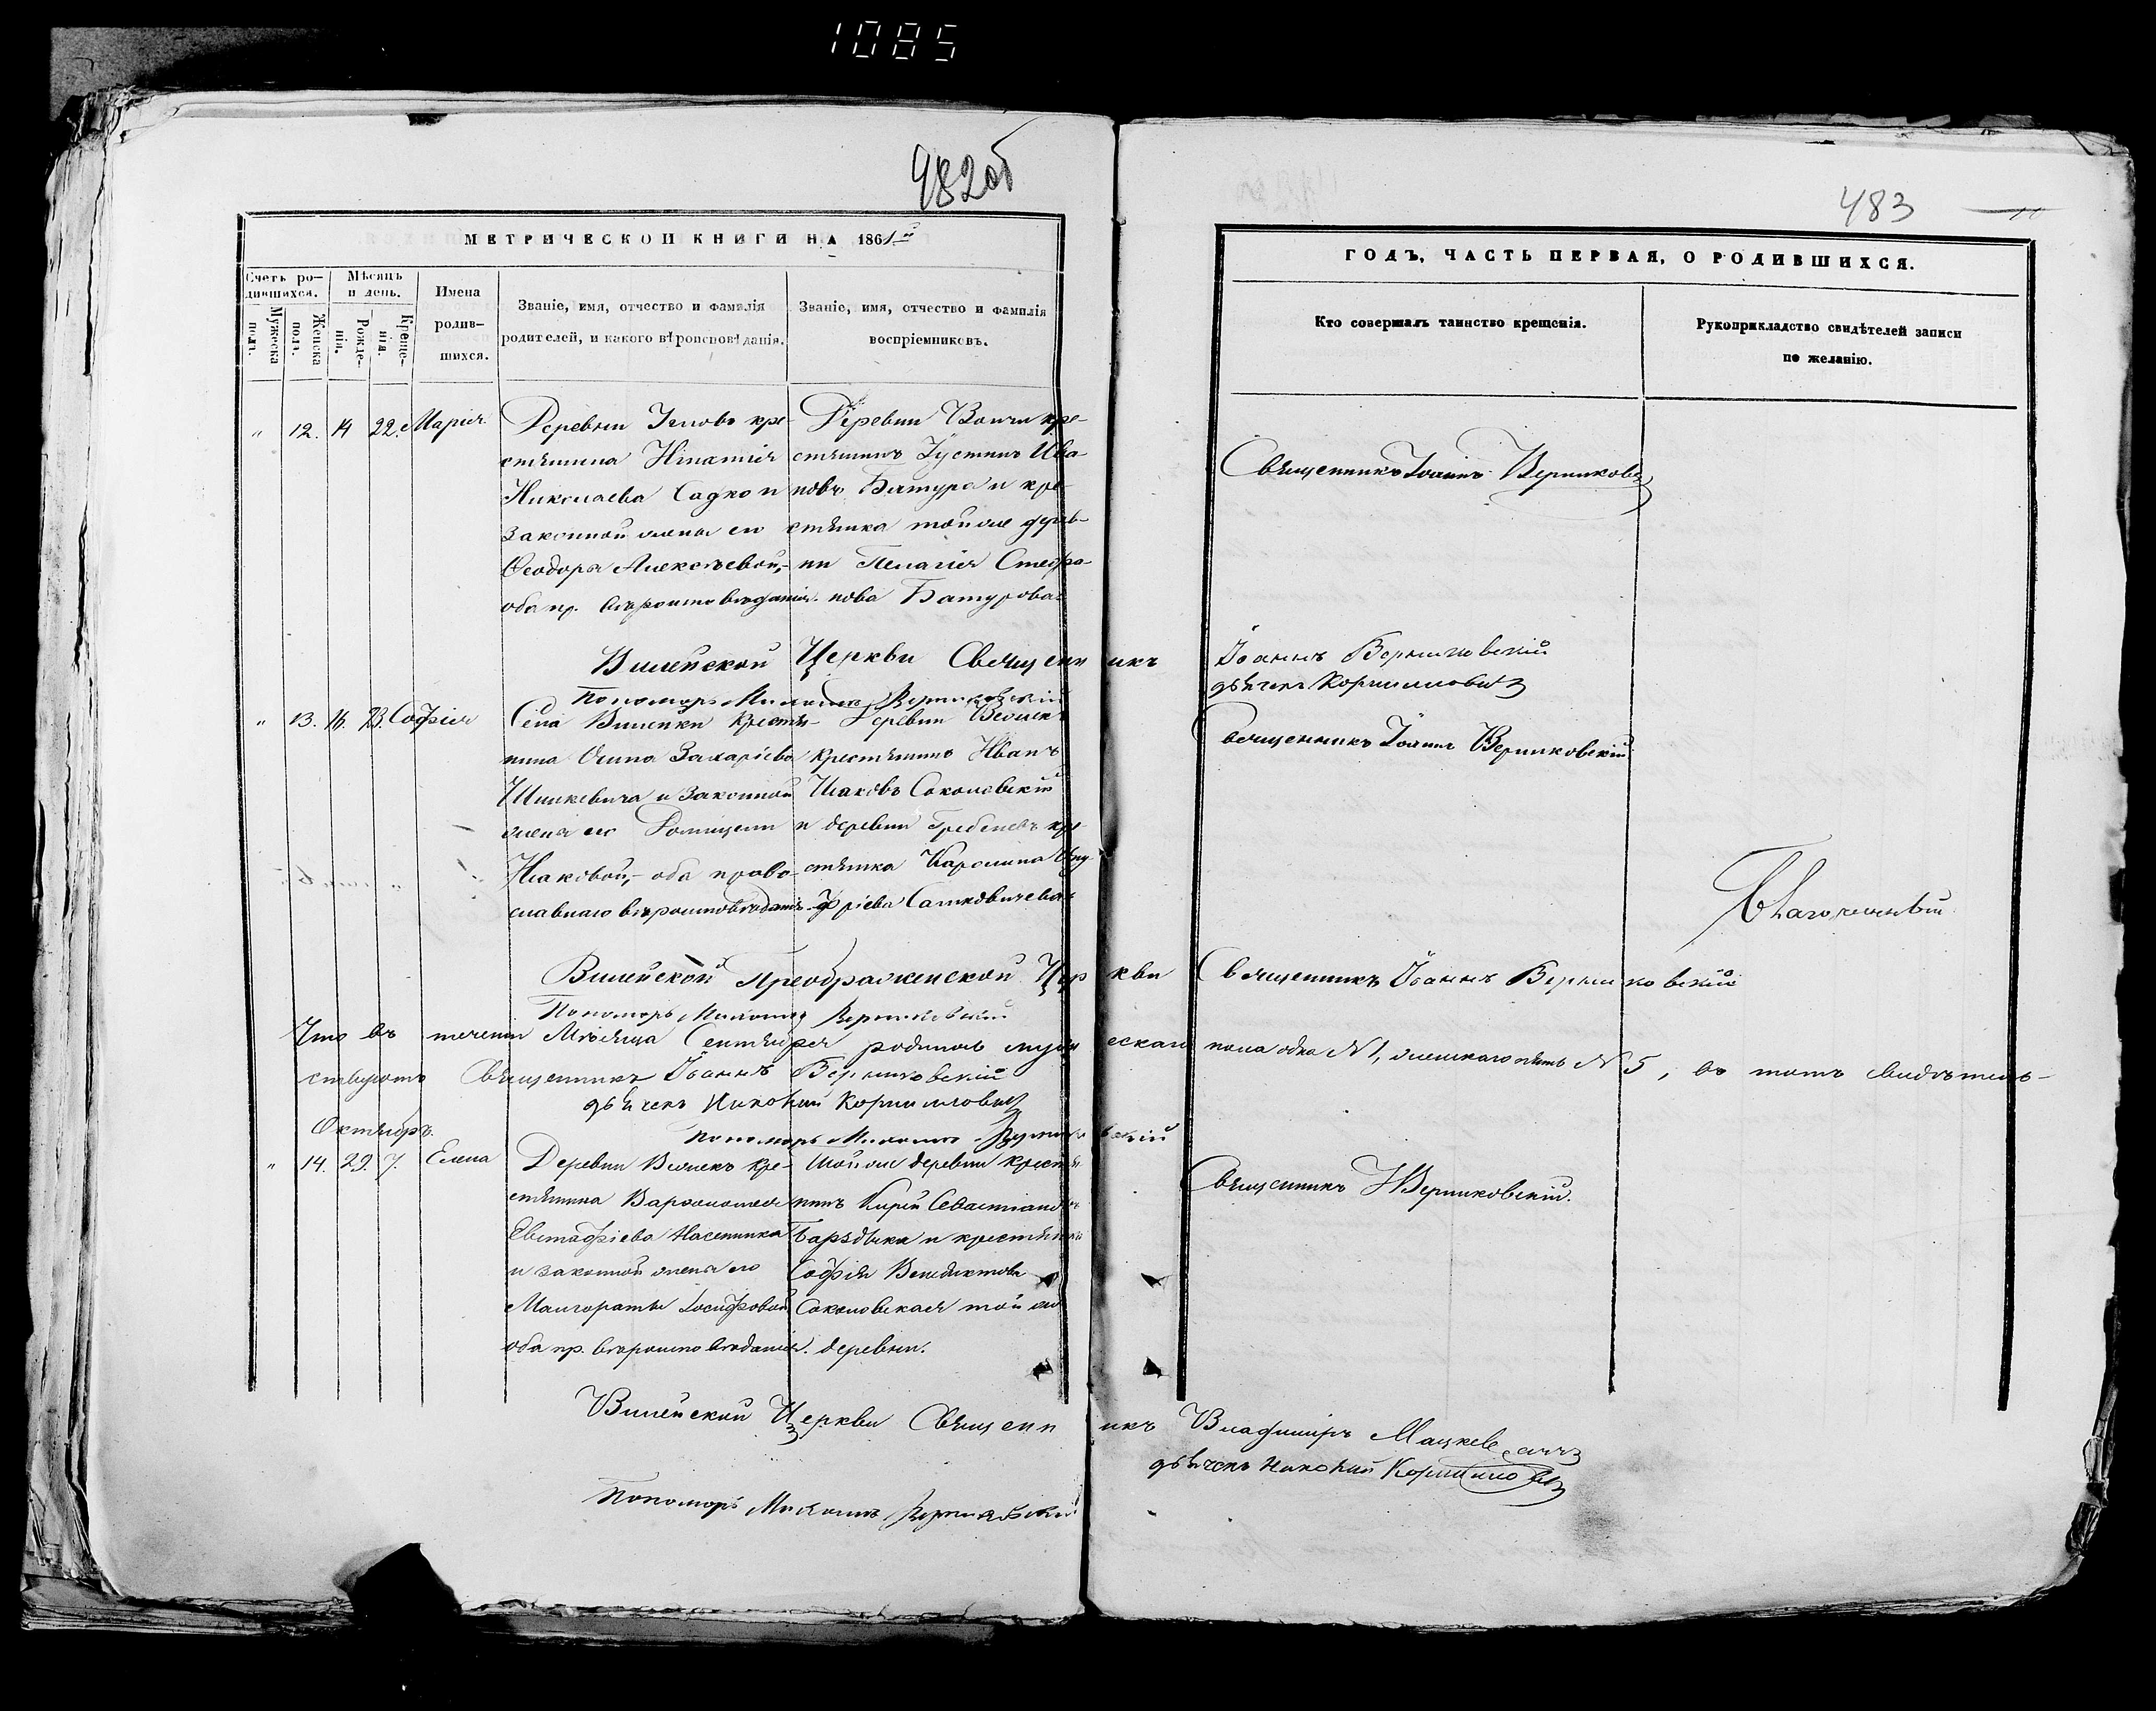 1085
482об
483
МЕТРИЧЕСКОЙ КНИГИ НА 1861й
ГОДЪ, ЧАСТЬ ПЕРВАЯ, О РОДИВШИХСЯ.
Счетъ ро-
дившихся.
Мужеска
полъ.
Женска
полъ.
Мѣсяцъ
и день.
Рожде-
нія.
Креще-
нія.
Имена
родив-
шихся.
Званіе, имя, отчество и фамилія
родителей, и какого вѣроисповѣданія.
Званіе, имя, отчество и фамилія
воспріемниковъ.
Кто совершалъ таинство крещенія.
Рукоприкладство свидѣтелей записи
по желанію.
" 12. 14 22. Марія
Деревни кре-
стянина Игнатія
Николаева Садко и
законной жены его
Ѳеодоры Алексѣевой,-
оба пр. вѣроисповѣданія.
Деревни кре-
стянинъ Іустинъ Ива-
новъ Батура и кре-
стянка той же дерев-
ни Пелагія Стефа-
нова Батурова
Священникъ Іоаннъ Верниковскій
Вилейской Церкви Священникъ Іоаннъ Верниковскій
дьячекъ Корниловичъ
Пономарь Михаилъ Верниковскій
" 13. 16. 23. Софія
Села Вилейки крестя-
нина Осипа Захаріева
Шишкевича и законной
жены его Домицели
Исаковой,- оба право-
славнаго вѣроисповѣданія.
Деревни
крестянинъ Иванъ
Исаковъ Соколовскій
и деревни кре-
стянка Каролина Ону-
фріева Сапковичева
Священникъ Іоаннъ Верниковскій
Благочинный
Вилейской Преображенской Церкви Священникъ Іоаннъ Верниковскій
Пономарь Михаилъ Верниковскій
Что въ теченіи Мѣсяца Сентября родилось мужескаго пола одно №1, женскаго пять №5, въ томъ свидѣтель-
ствуютъ Священникъ Іоаннъ Верниковскій
дьячекъ Корниловичъ
Пономарь Михаилъ Верниковскій
Октябрь.
" 14. 29. 7. Елена
Деревни кре-
стянина Варфоломея
Евстафіева
и законной жены его
Малгораты Іосифовой
оба пр. вѣроисповѣданія.
Той же деревни крестя-
нинъ Севастіановъ
и крестянка
Софія Венедиктова
Соколовская той же
деревни.
Священникъ І Верниковскій.
Вилейской Церкви Священникъ Владиміръ Мацкевичъ
дьячекъ Корниловичъ
Пономарь Михаилъ Верниковскій